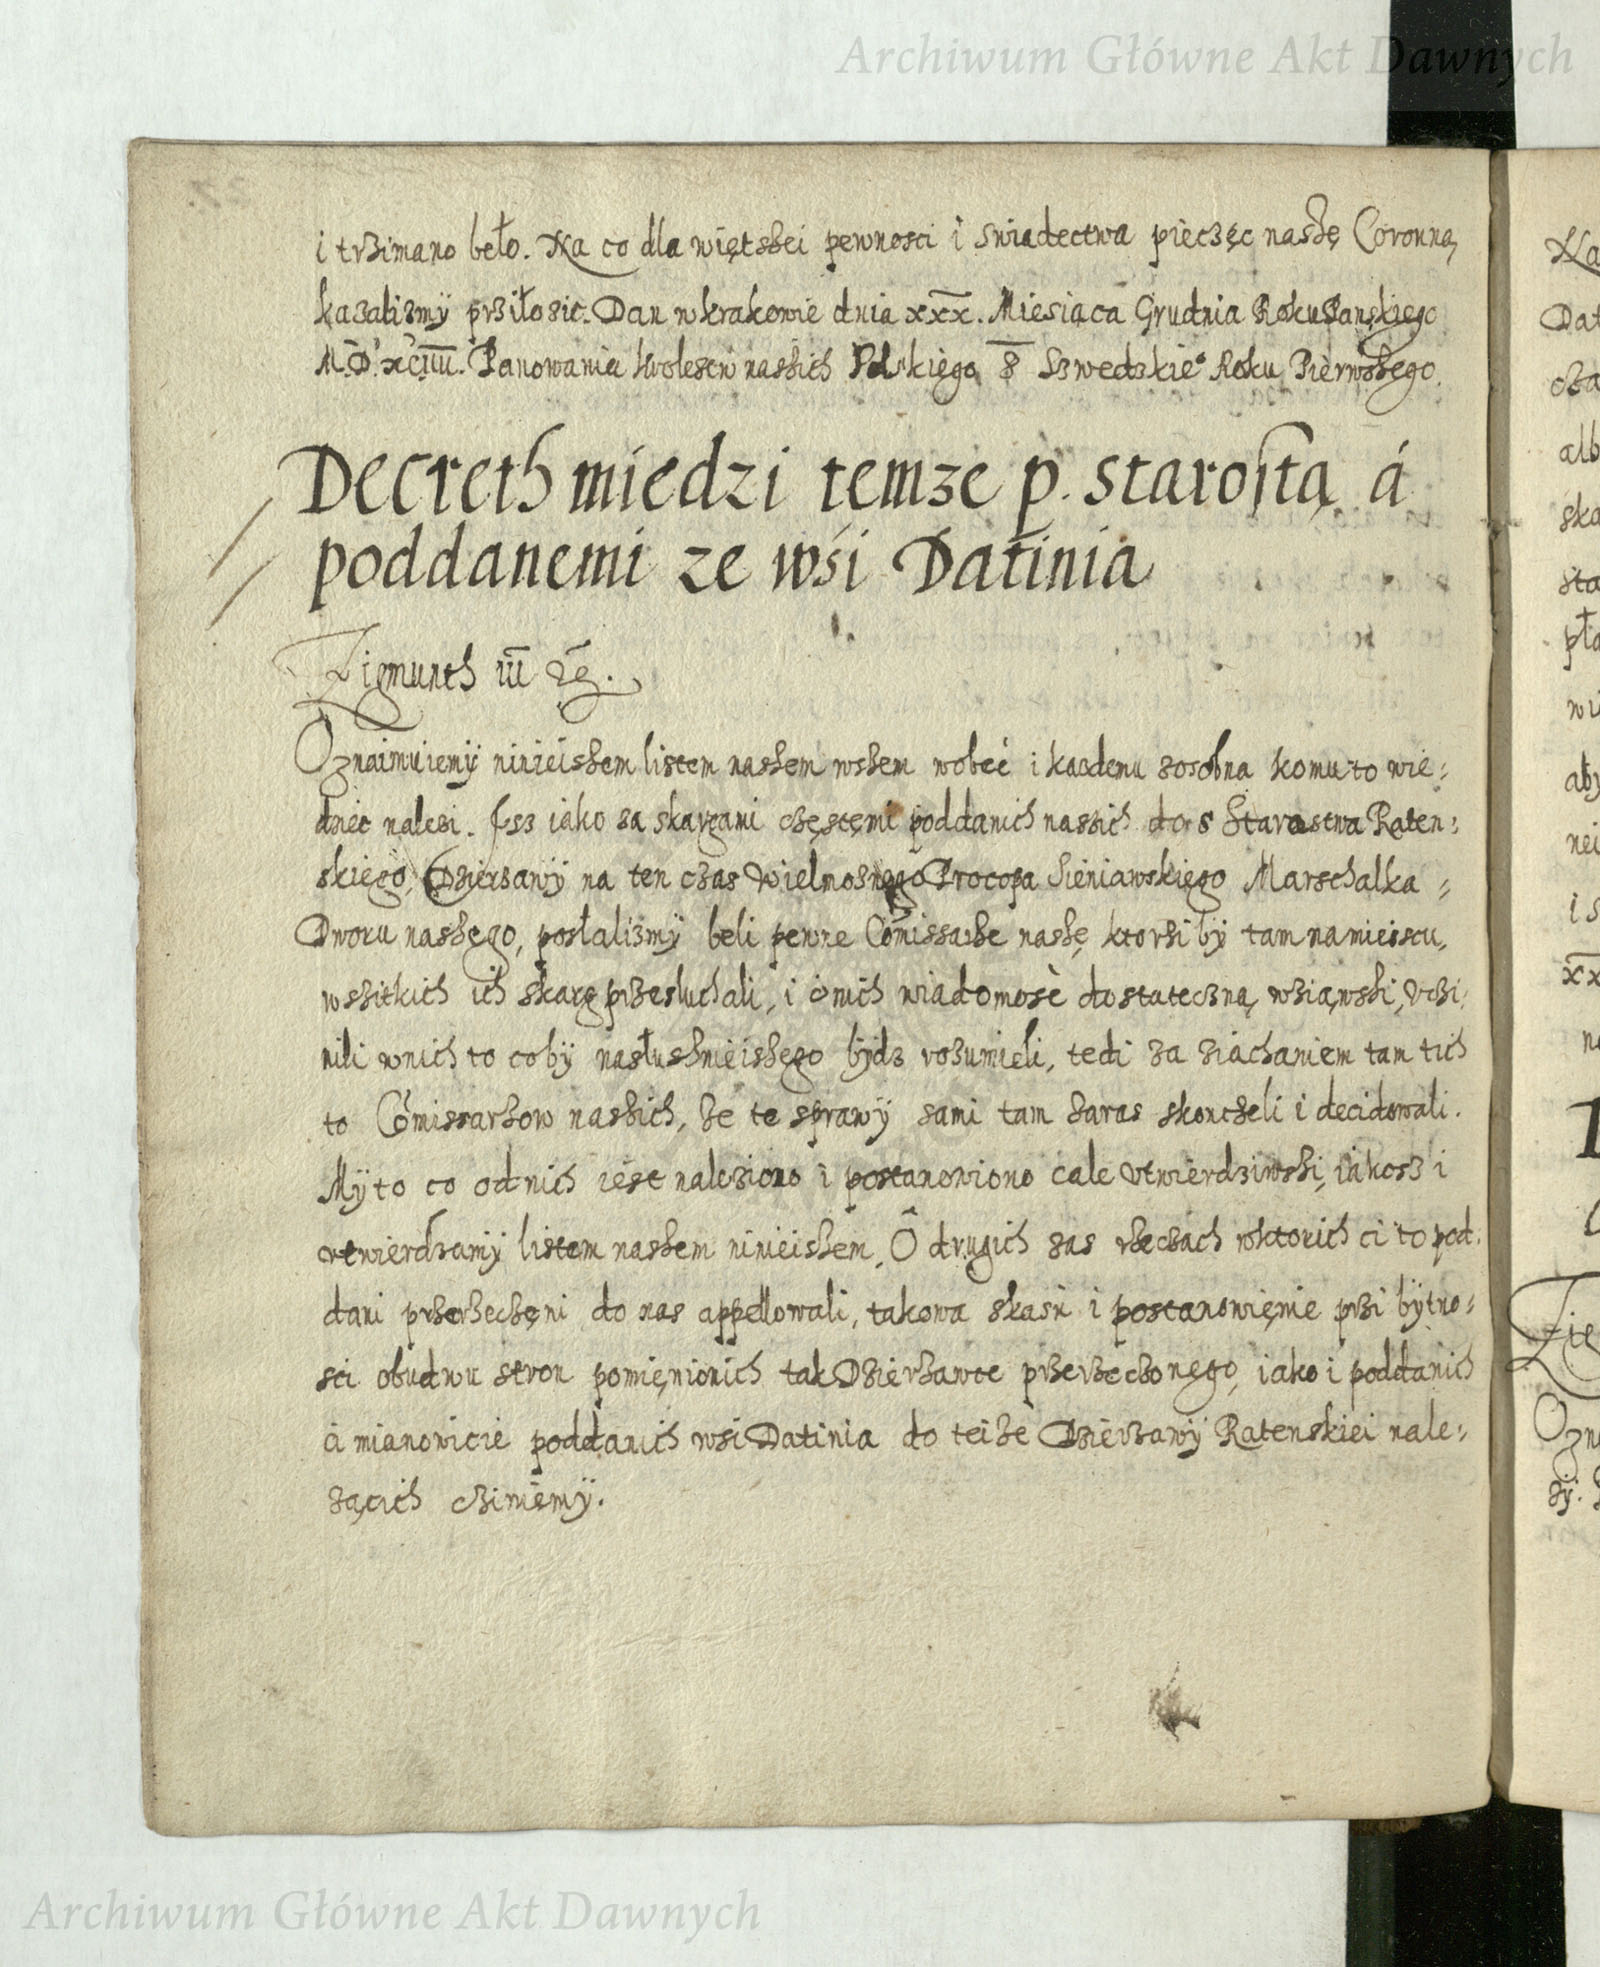 Archiwum Główne Akt Dawnych
i trzimano beło. Na co dla więtshei pewnosci i swiadectwa pieczęc nashę Coronną
kazalizmÿ prziłozic. Dan w krakowie dnia xxx. Miesiąca Grudnia Roku Panskiego
M.D.xciiii. Panowania krolestw nashich Polskięgo, 8 Szwedzkieo Roku Pierwshego.
Decreth miedzi temze p. starostą á
poddanemi ze wsi Datinia
Zigmunth iii
Oznaimuiemÿ ninieishem listem nashem wshem wobec i kazdemu zosobna komu to wie-
dziec nalezi. Isz iako za skargami częstęmi poddanich nashich do s Starostwa Raten-
skięgo, Dzierzawÿ na ten czas Wielmoznego Procopa Sieniawskięgo Marschalka
Dworu nashęgo, posłalizmÿ beli pewne Comissarze nashę, ktorzi bÿ tam na mieiscu,
wshitkich ich skarg przesluchali, i o nich wiadomosc dostateczną wziąwshi, uczi-
nili w nich to co bÿ nasłushnieishęgo bÿdz rozumieli, tedi za ziachaniem tam tich
to Comissarzow nashich, ze te sprawÿ sami tam zaras skonczeli i decidowali.
Mÿ to co od nich iest nalezione i postanowiono cale utwierdziwshi, iakosz i
utwierdzamÿ listem nashem ninieishem, O drugich zas rzeczach w ktorich ci to pod-
dani przerzeczęni do nas appellowali, takową skasn i postanowięnie przi bÿtno-
sci obudwu stron pomięnionich tak Dzierzawce przerzeczonęgo, iako i poddanich
á mianowicie poddanich wsi Datinia do teize Dzierzawÿ Ratenskiei nale-
zącich cziniemÿ.
Archiwum Główne Akt Dawnych